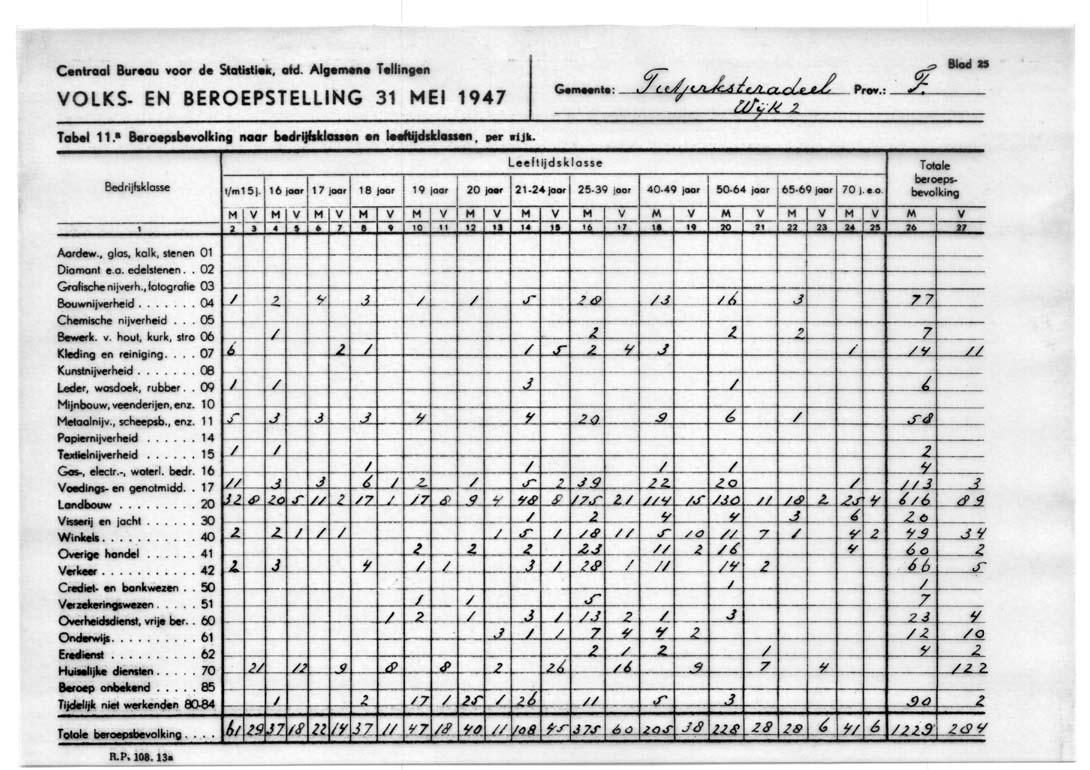 Centraal Bureau voor de Statistiek, afd. Algemene Tellingen
VOLKS- EN BEROEPSTELLING 31 MEI 1947
Gemeente: Tietjerksteradeel Prov.: F.
Wijk 2
Blad 25
Tabel 11.a Beroepsbevolking naar bedrijfsklassen en leeftijdsklassen, per wijk.
Bedrijfsklasse Leeftijdsklasse Totale beroeps- bevolking
t/m 15 j. 16 jaar 17 jaar 18 jaar 19 jaar 20 jaar 21-24 jaar 25-39 jaar 40-49 jaar 50-64 jaar 65-69 jaar 70 j. e.o.
M V M V M V M V M V M V M V M V M V M V M V M V M V
1 2 3 4 5 6 7 8 9 10 11 12 13 14 15 16 17 18 19 20 21 22 23 24 25 26 27
Aardew., glas, kalk, stenen 01
Diamant e.a. edelstenen . . 02
Grafische nijverh., fotografie 03
Bouwnijverheid . . . . . . . 04 1 2 4 3 1 1 5 28 13 16 3 77
Chemische nijverheid . . . 05
Bewerk. v. hout, kurk, stro 06 1 2 2 2 7
Kleding en reiniging. . . . 07 6 2 1 1 5 2 4 3 1 14 11
Kunstnijverheid . . . . . . . 08
Leder, wasdoek, rubber. . 09 1 1 3 1 6
Mijnbouw, veenderijen, enz. 10
Metaalnijv., scheepsb., enz. 11 5 3 3 3 4 4 20 9 6 1 58
Papiernijverheid . . . . . . 14
Textielnijverheid . . . . . . 15 1 1 2
Gas-, electr.-, waterl. bedr. 16 1 1 1 1 4
Voedings- en genotmidd. . 17 11 3 3 6 1 2 1 5 2 39 22 20 1 113 3
Landbouw . . . . . . . . . 20 32 8 20 5 11 2 17 1 17 8 9 4 48 8 175 21 114 15 130 11 18 2 25 4 616 89
Visserij en jacht . . . . . . 30 1 2 4 4 3 6 20
Winkels . . . . . . . . . . 40 2 2 1 1 1 1 5 1 18 11 5 10 11 7 1 4 2 49 34
Overige handel . . . . . . 41 2 2 2 23 11 2 16 4 60 2
Verkeer. . . . . . . . . . . 42 2 3 4 1 1 3 1 28 1 11 14 2 66 5
Crediet- en bankwezen . . 50 1 1
Verzekeringswezen. . . . . 51 1 1 5 7
Overheidsdienst, vrije ber. . 60 1 2 1 3 1 13 2 1 3 23 4
Onderwijs. . . . . . . . . . 61 3 1 1 7 4 4 2 12 10
Eredienst . . . . . . . . . . 62 2 1 2 1 4 2
Huiselijke diensten . . . . . 70 21 12 9 8 8 2 26 16 9 7 4 122
Beroep onbekend . . . . . 85
Tijdelijk niet werkenden 80-84 1 2 17 1 25 1 26 11 5 3 90 2
Totale beroepsbevolking . . . . 61 29 37 18 22 14 37 11 47 18 40 11 108 45 375 60 205 38 228 28 28 6 41 6 1229 284
R.P. 108. 13a